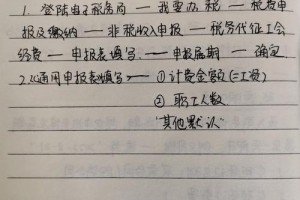 1. 登陆电子税务局 — 我要办税 — 税费申
报及缴纳 — 非税收入申报 — 税务代征工会
经费 — 申报表填写 — 申报属期 — 确定
2.《通用申报表填写》— ① 计费金额(=工资)
② 职工人数
"其他默认"